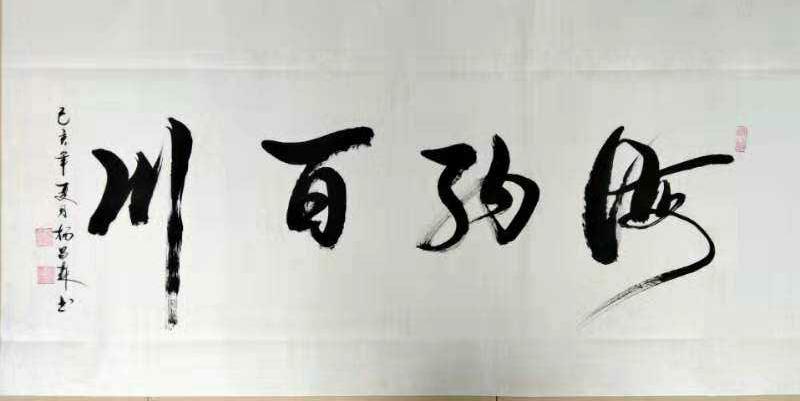 海纳百川
己亥年夏月杨昌森书